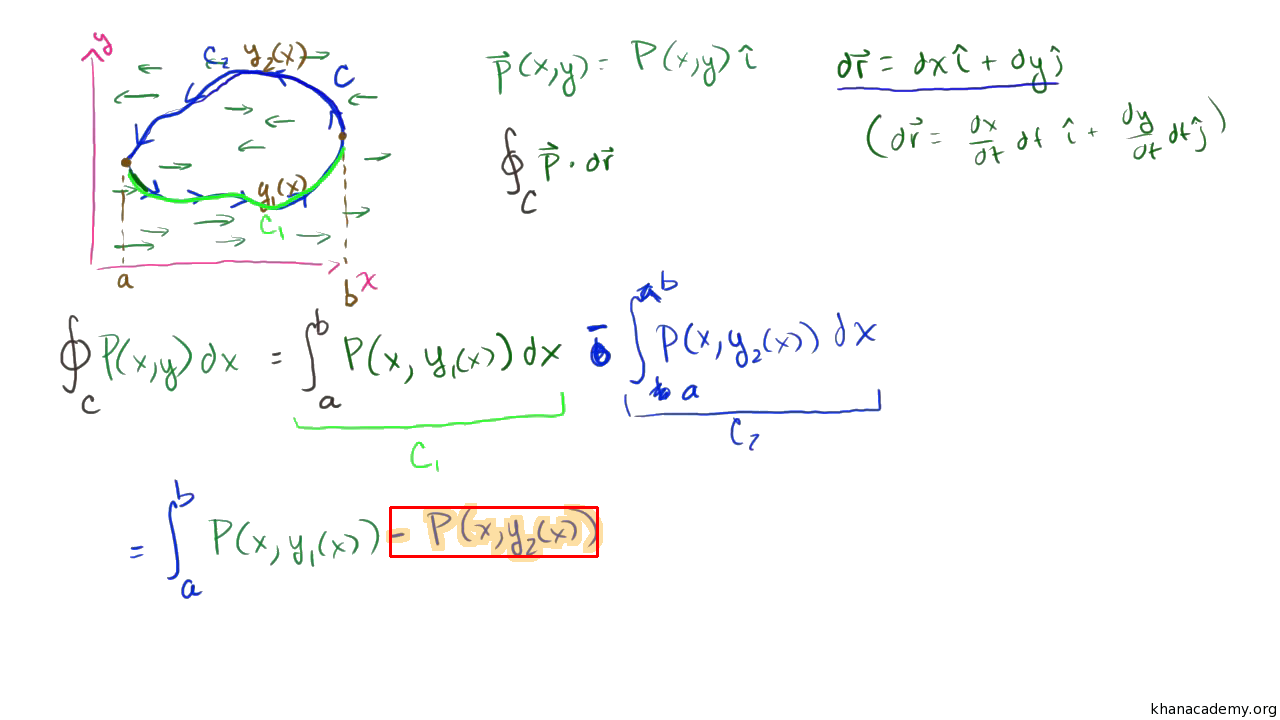 y
C₂ y₂(x)
C
y₁(x)
C₁
a
b x
p⃗(x,y) = P(x,y) î
∮_C p⃗ · dr⃗
dr⃗ = dx î + dy ĵ
(dr⃗ = dx/dt dt î + dy/dt dt ĵ)
∮_C P(x,y) dx = ∫_a^b P(x, y₁(x)) dx - ∫_a^b P(x, y₂(x)) dx
C₁ C₂
= ∫_a^b P(x, y₁(x)) - P(x, y₂(x))
khanacademy.org